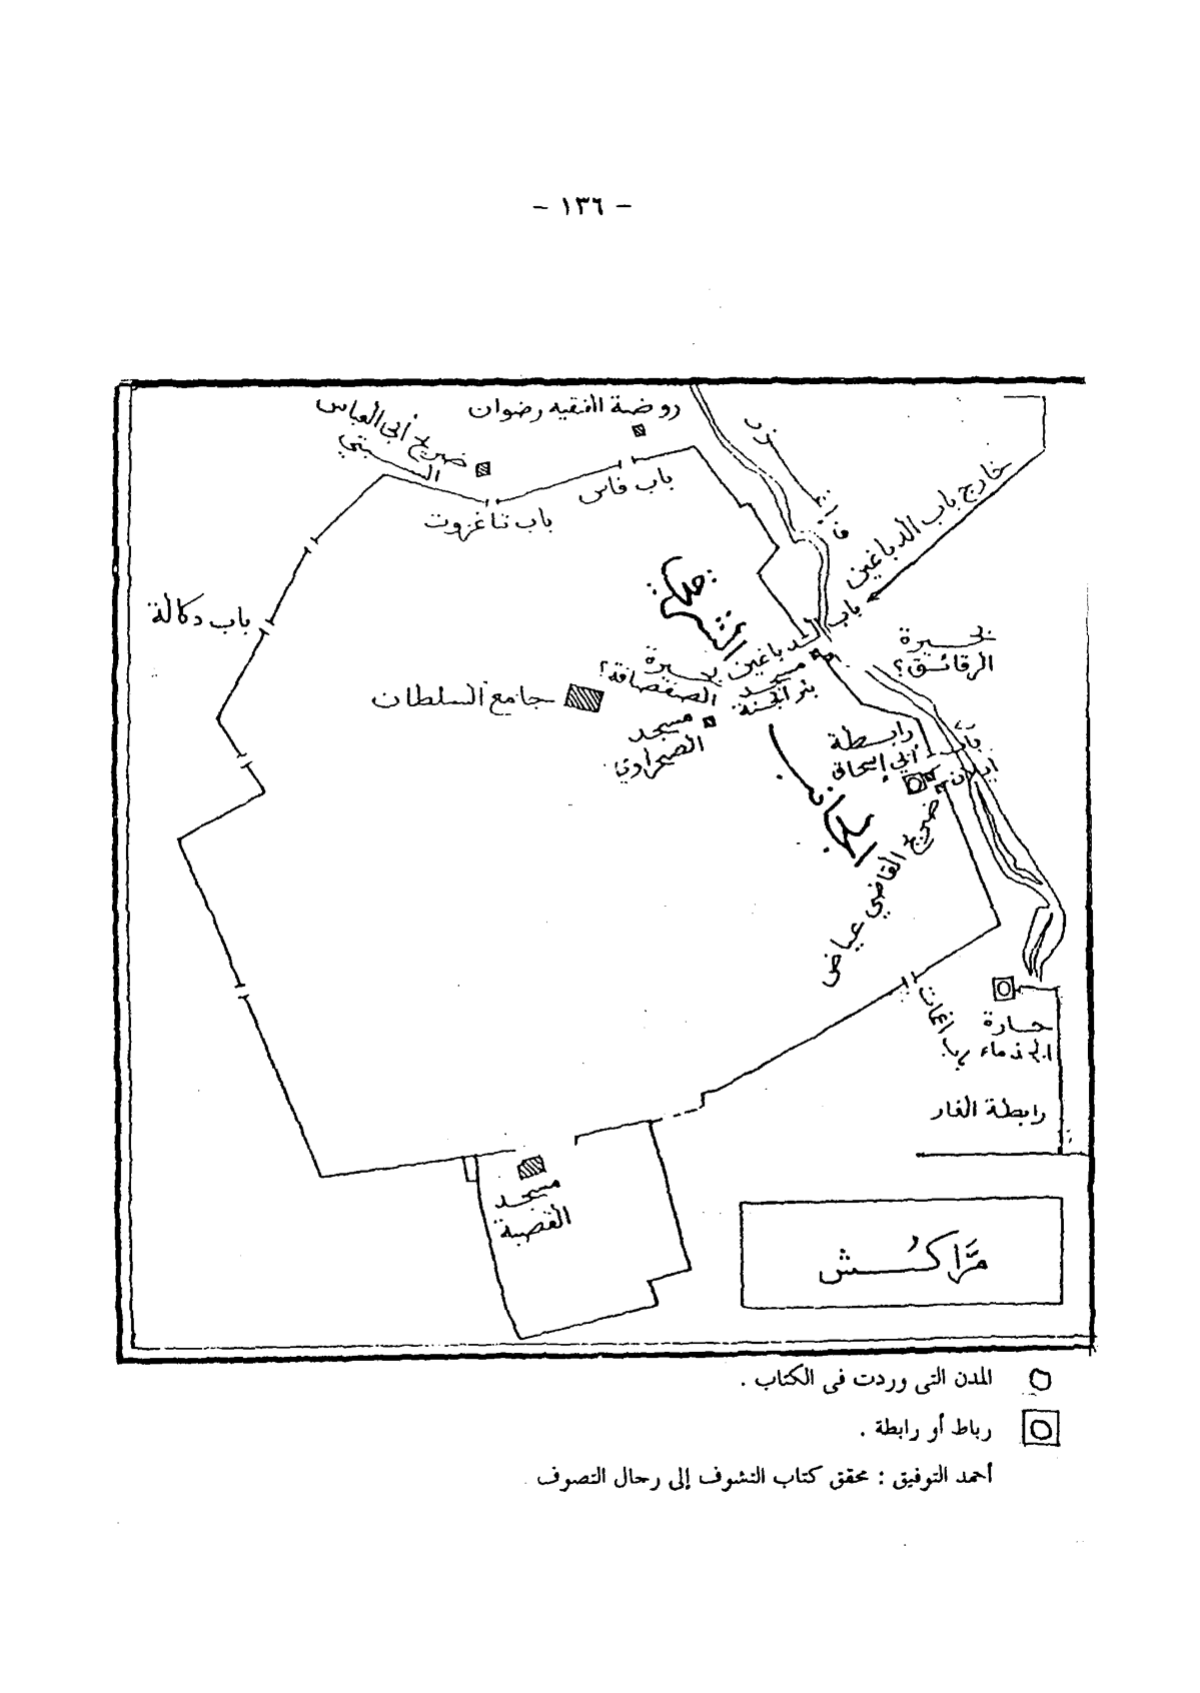 - ١٣٦ -
روضة الفقيه رضوان
ضريح أبي العباس
السبتي
باب فاس
باب تاغزوت
خارج باب الدباغين
باب دكالة
باب الدباغين
بحيرة
الرقائق؟
بحيرة
الصفصافة؟
مسجد
بئر الجنة
جامع السلطان
مسجد
الصحراوي
رابطة
أبي إسحاق
باب
ايلان
ضريح القاضي عياض
باب اغمات
حارة
رابطة الغار
مسجد
القصبة
مَرَّاكُش
المدن التى وردت فى الكتاب .
رباط أو رابطة .
أحمد التوفيق : محقق كتاب التشوف إلى رحال التصوف